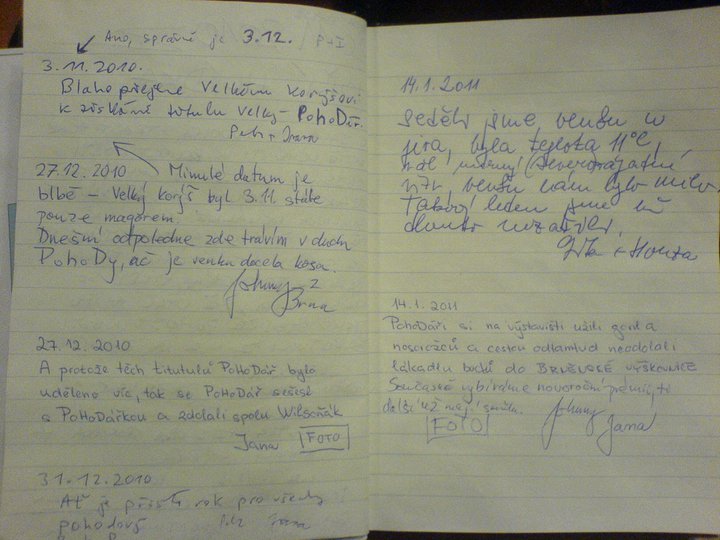 Ano, správně je 3.12. / P+I
3.11.2010.
Blahopřejeme Velkému Koryšovi
k získání titulu velký PoHoDář.
Petr Ivana
27.12.2010 Minulé datum je
blbě - Velký koryš byl 3.11 stále
pouze magorem.
Dnešní odpoledne zde trávím v duchu
PoHoDy, ač je venku docela kosa.
Johny z
Brna
27.12.2010
A protože těch titutulů PoHoDář bylo
uděleno víc, tak se PoHoDář sešel
s PoHoDářkou a zdolali spolu Wilsoňák
Jana FOTO
31.12.2010
Ať je příští rok pro všechny
pohodový
14.1.2011
Seděli jsme venku u
piva, byla teplota 11°C,
vál mírný (severozápadní
vítr, venku nám bylo milo.
Takový leden jsme už
dlouho nezažili.
+ Honza
14.1.2011
PohoDáři si na výstavišti užili gord a
nosorožců a cestou odtamtud neodolali
lákadlu bočků do BRNĚNSKÉ VÝŠKOVNICE
Současně vybíráme novoroční prémii, ti
další už mají smůlu.
FOTO Johny
Jana